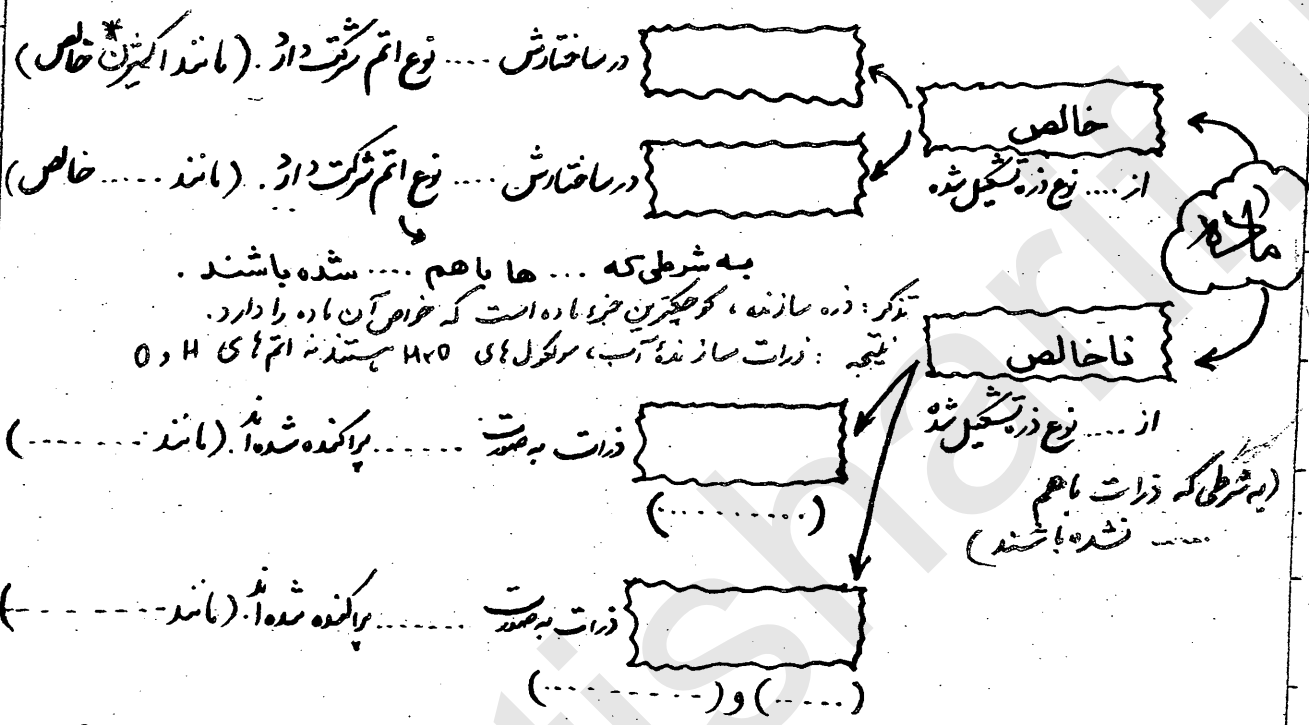 ماده
خالص
از .... نوع ذره تشکیل شده
در ساختارش .... نوع اتم شرکت دارد. (مانند اکسیژن* خالص)
در ساختارش .... نوع اتم شرکت دارد. (مانند ..... خالص)
به شرطی که ... ها با هم .... شده باشند.
تذکر: ذره سازنده، کوچکترین جزء ماده است که خواص آن ماده را دارد.
نتیجه: ذرات سازندهٔ آب، مولکول های H۲O هستند نه اتم های H و O
ناخالص
از .... نوع ذره تشکیل شده
(به شرطی که ذرات با هم
..... نشده باشند)
ذرات به صورت ....... پراکنده شده اند. (مانند ..........)
(..........)
ذرات به صورت ....... پراکنده شده اند. (مانند ..........)
(......) و (..........)